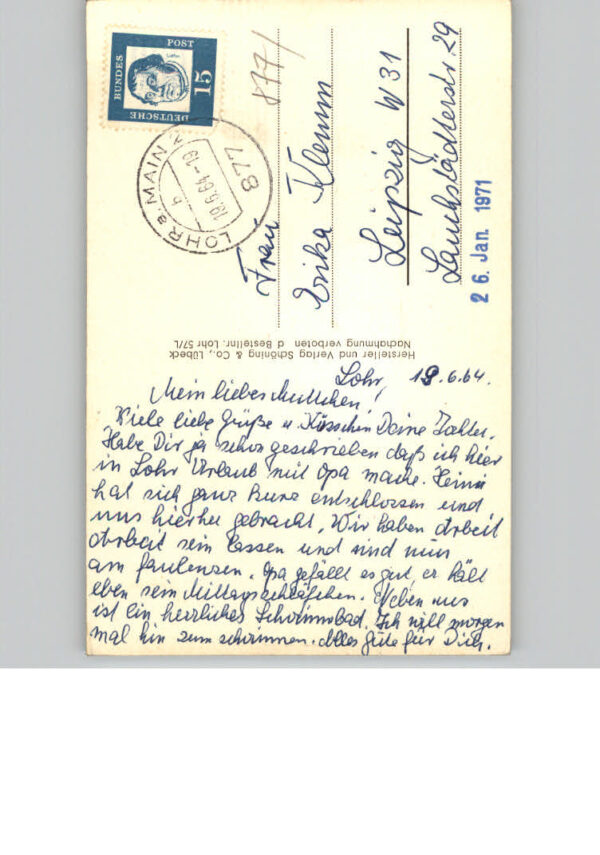 Lohr, 18.6.64.
Mein liebes Muttchen!
Viele liebe Grüße u. Küsschen Deine Tochter.
Habe Dir ja schon geschrieben daß ich hier
in Lohr Urlaub mit Opa mache. Heini
hat sich ganz kurz entschlossen und
uns hierher gebracht. Wir haben Arbeit
Arbeit sein lassen und sind nun
am faulenzen. Opa gefällt es gut, er hält
eben sein Mittagsschläfchen. Neben uns
ist ein herrliches Schwimmbad. Ich will morgen
mal hin zum schwimmen. Alles Gute für Dich.
Frau
Erika Klemm
Leipzig W 31
Lauchstädterstr. 29
26. Jan. 1971
8771
DEUTSCHE
BUNDES
POST
15
LOHR a. MAIN 2
19.6.64-19
h
877
Hersteller und Verlag Schöning & Co., Lübeck
Nachahmung verboten d Bestellnr. Lohr 57/L